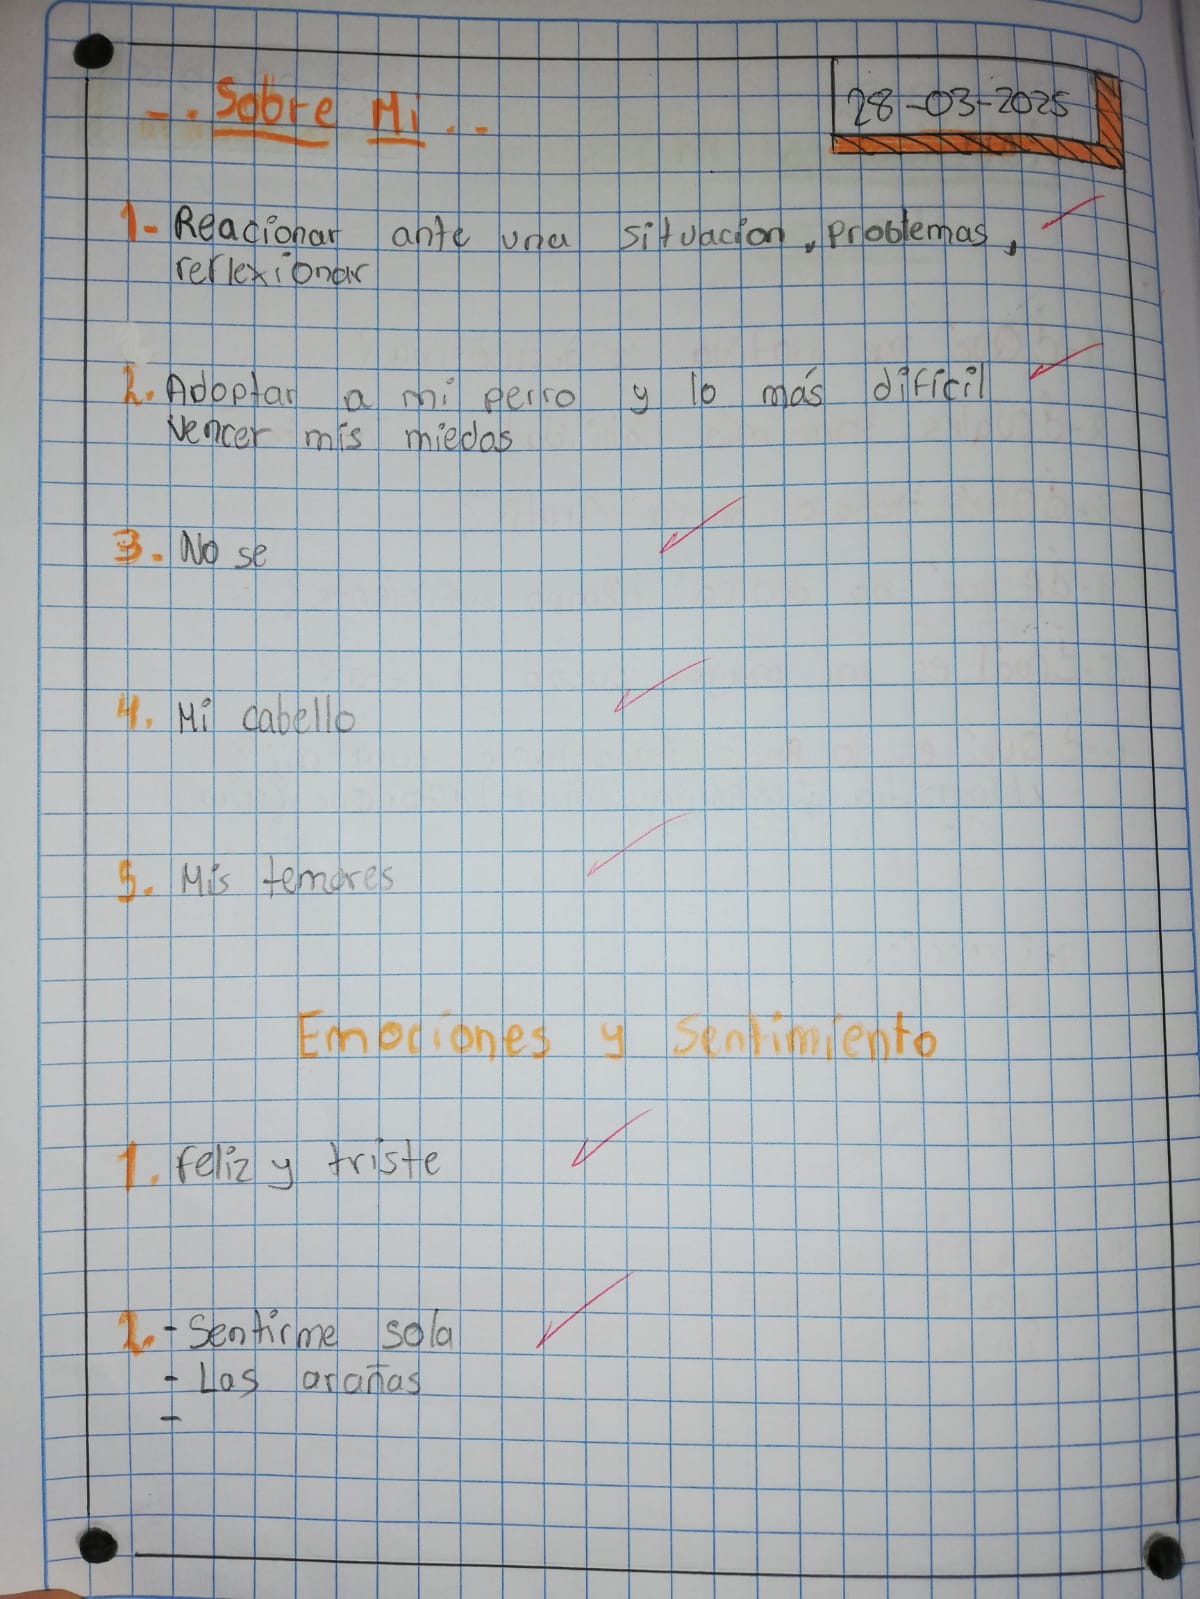 --. Sobre Mi ..-
28-03-2025
1- Reacionar ante una situacion, problemas,
reflexionar
2. Adoptar a mi perro y lo más dificil
Vencer mis miedos
3. No se
4. Mi cabello
5. Mis temores
Emociones y Sentimiento
1. feliz y triste
2. - Sentirme sola
- Las arañas
-